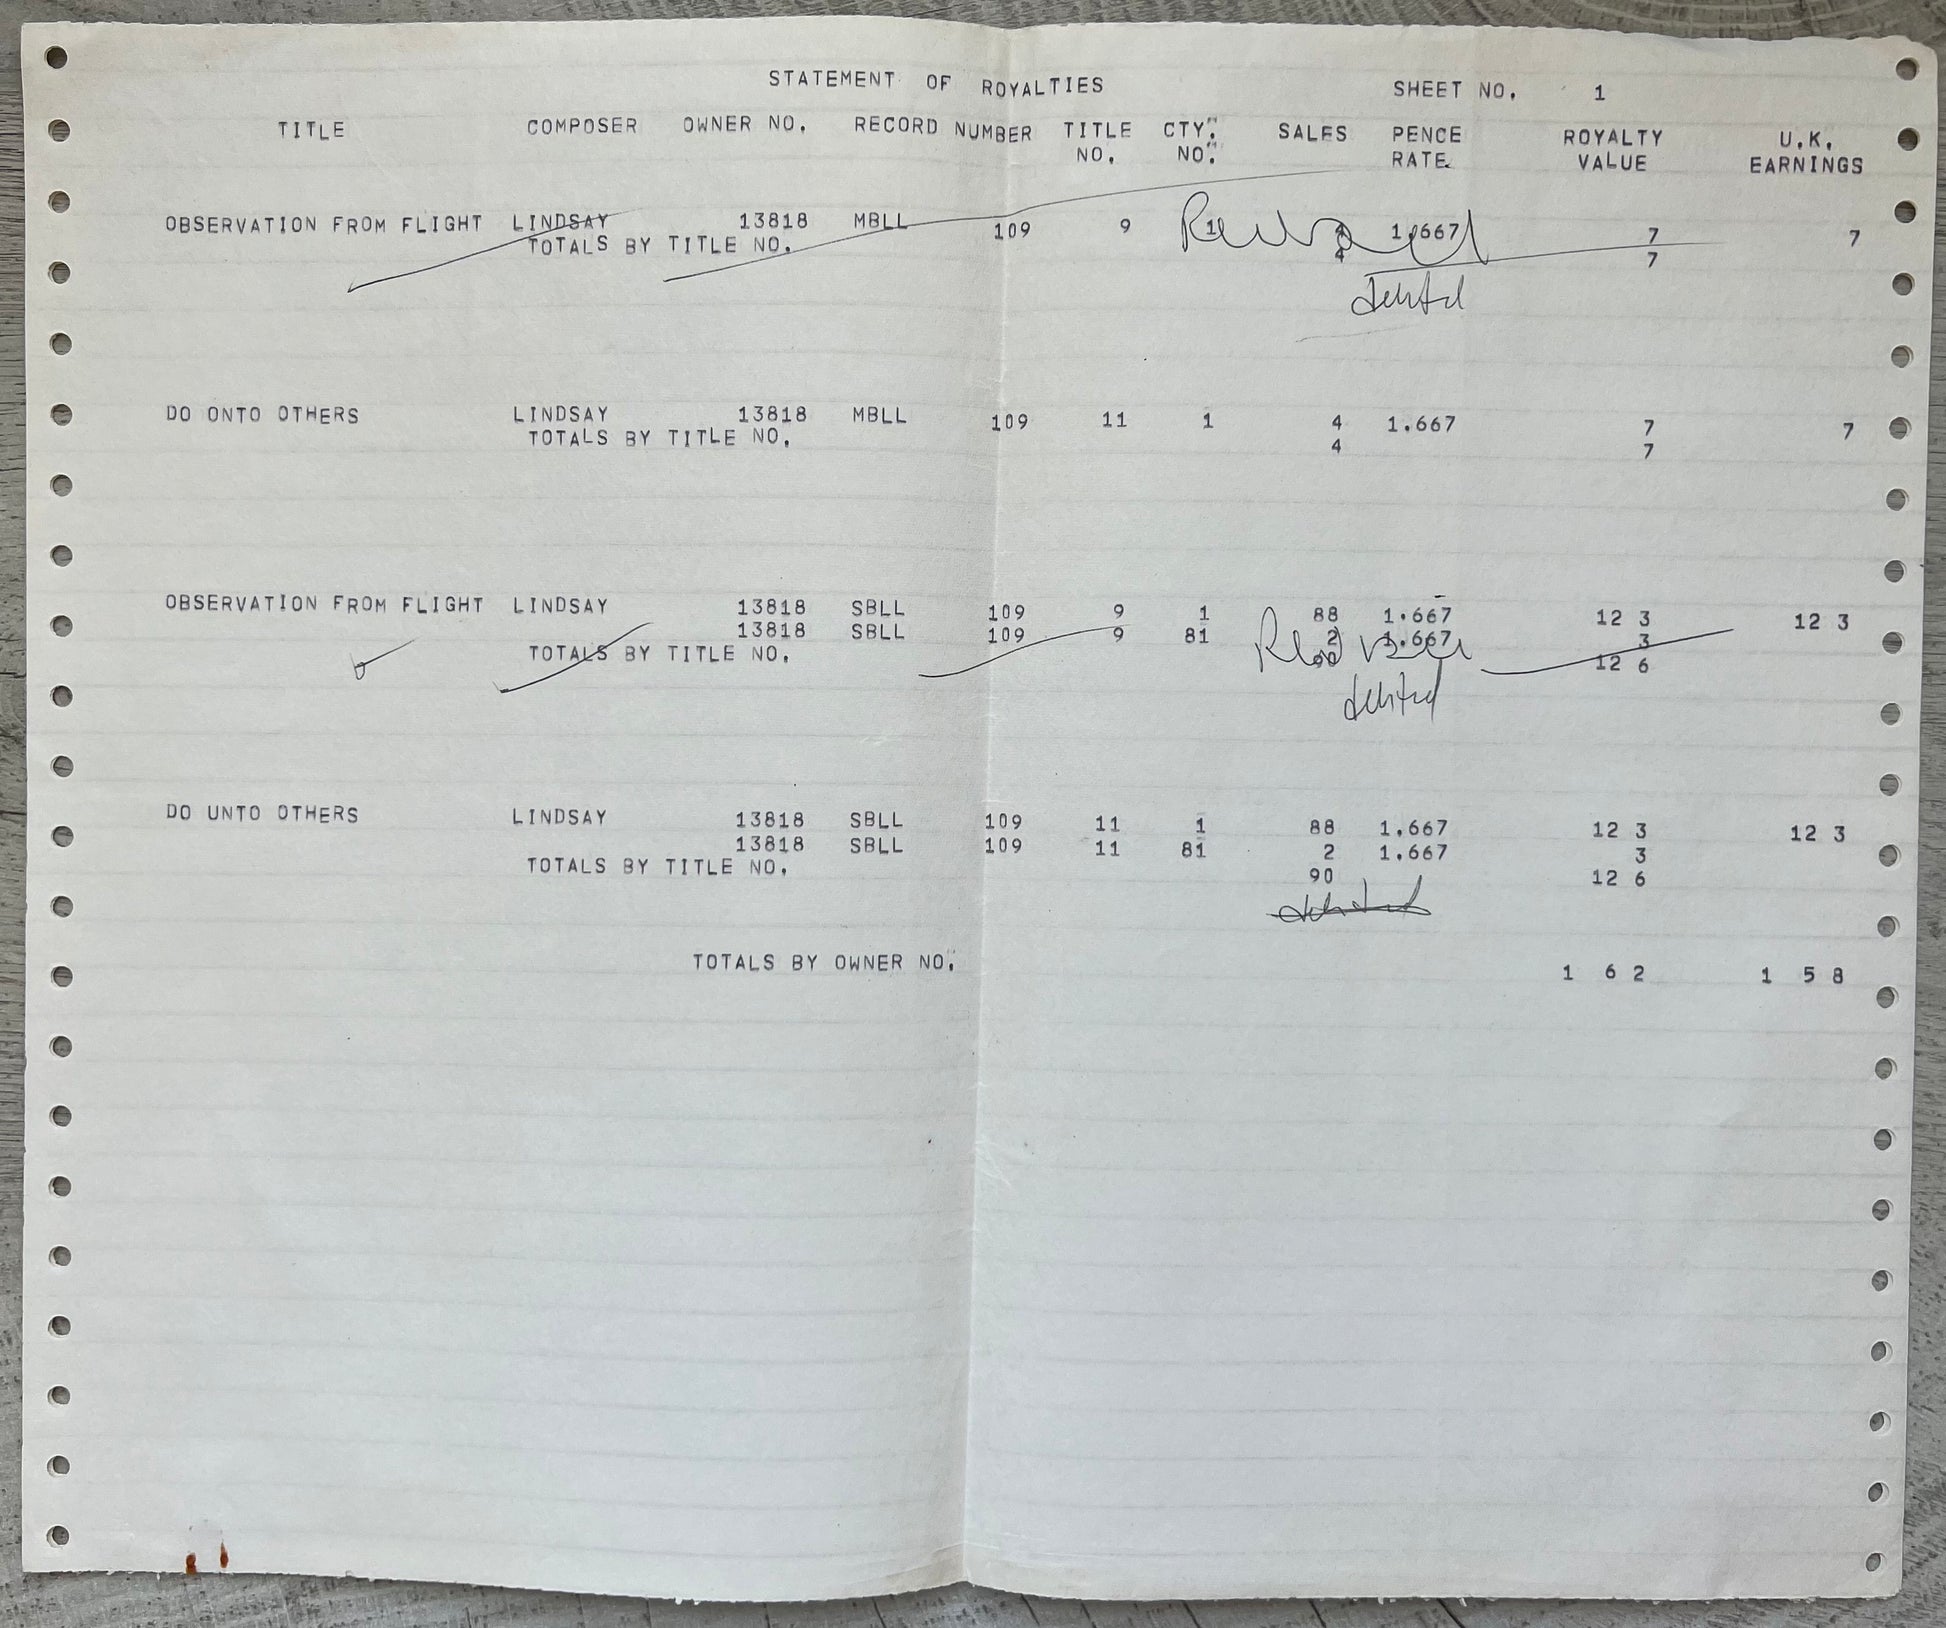 STATEMENT OF ROYALTIES SHEET NO. 1
TITLE COMPOSER OWNER NO. RECORD NUMBER TITLE CTY. SALES PENCE ROYALTY U.K.
NO. NO. RATE. VALUE EARNINGS
OBSERVATION FROM FLIGHT LINDSAY 13818 MBLL 109 9 1 4 1.667 7 7
TOTALS BY TITLE NO. 4 7
DO ONTO OTHERS LINDSAY 13818 MBLL 109 11 1 4 1.667 7 7
TOTALS BY TITLE NO. 4 7
OBSERVATION FROM FLIGHT LINDSAY 13818 SBLL 109 9 1 88 1.667 12 3 12 3
13818 SBLL 109 9 81 2 1.667 3
TOTALS BY TITLE NO. 90 12 6
DO UNTO OTHERS LINDSAY 13818 SBLL 109 11 1 88 1.667 12 3 12 3
13818 SBLL 109 11 81 2 1.667 3
TOTALS BY TITLE NO. 90 12 6
TOTALS BY OWNER NO. 1 6 2 1 5 8